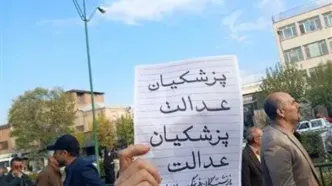 پزشکیان
عدالت
پزشکیان
عدالت